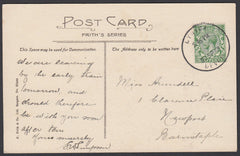 POST CARD
FAITH'S SERIES
This Space may be used for Communication.
The Address only to be written here.
We are leaving
by the early train
tomorrow, and
should therefore
be with you soon
after this
Yours sincerely
Miss Arundell
1 Clarence Place
Newport
Barnstaple